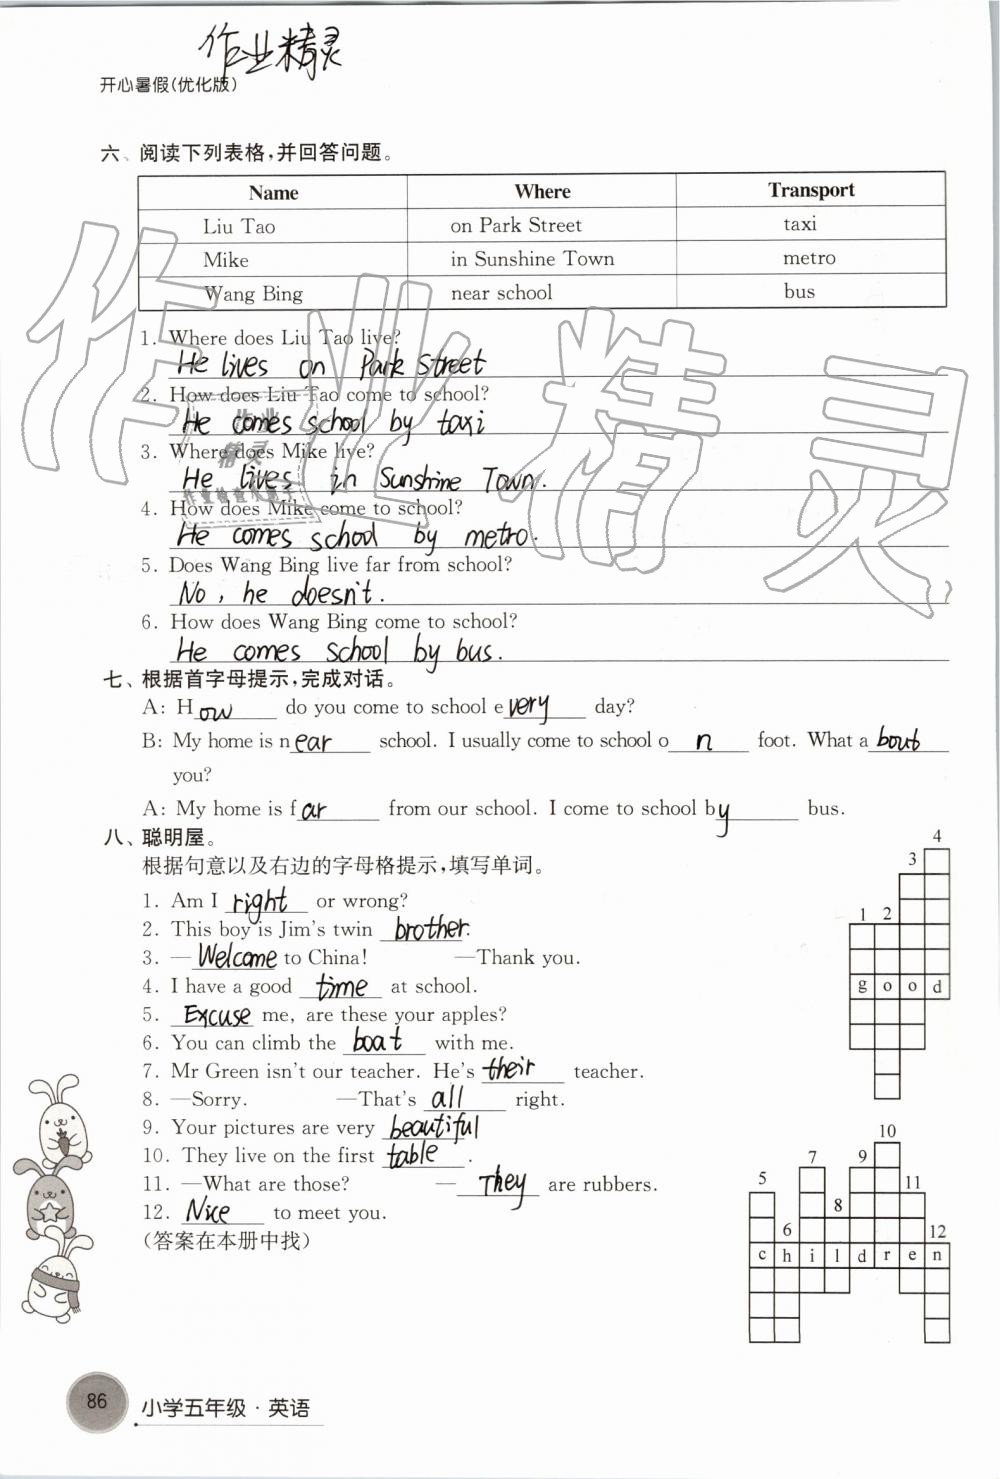 作业精灵
开心暑假(优化版)
六、阅读下列表格,并回答问题。
Name Where Transport
Liu Tao on Park Street taxi
Mike in Sunshine Town metro
Wang Bing near school bus
1. Where does Liu Tao live?
He lives on Park Street
2. How does Liu Tao come to school?
He comes school by taxi
3. Where does Mike live?
He lives in Sunshine Town.
4. How does Mike come to school?
He comes school by metro.
5. Does Wang Bing live far from school?
No, he doesn't.
6. How does Wang Bing come to school?
He comes school by bus.
七、根据首字母提示,完成对话。
A: How do you come to school every day?
B: My home is near school. I usually come to school on foot. What about
you?
A: My home is far from our school. I come to school by bus.
八、聪明屋。
根据句意以及右边的字母格提示,填写单词。
1. Am I right or wrong?
2. This boy is Jim's twin brother.
3. —Welcome to China! —Thank you.
4. I have a good time at school.
5. Excuse me, are these your apples?
6. You can climb the boat with me.
7. Mr Green isn't our teacher. He's their teacher.
8. —Sorry. —That's all right.
9. Your pictures are very beautiful
10. They live on the first table.
11. —What are those? —They are rubbers.
12. Nice to meet you.
(答案在本册中找)
1 2 3 4
g o o d
5 6 7 8 9 10 11 12
c h i l d r e n
作业精灵
作业
精灵
86
小学五年级·英语